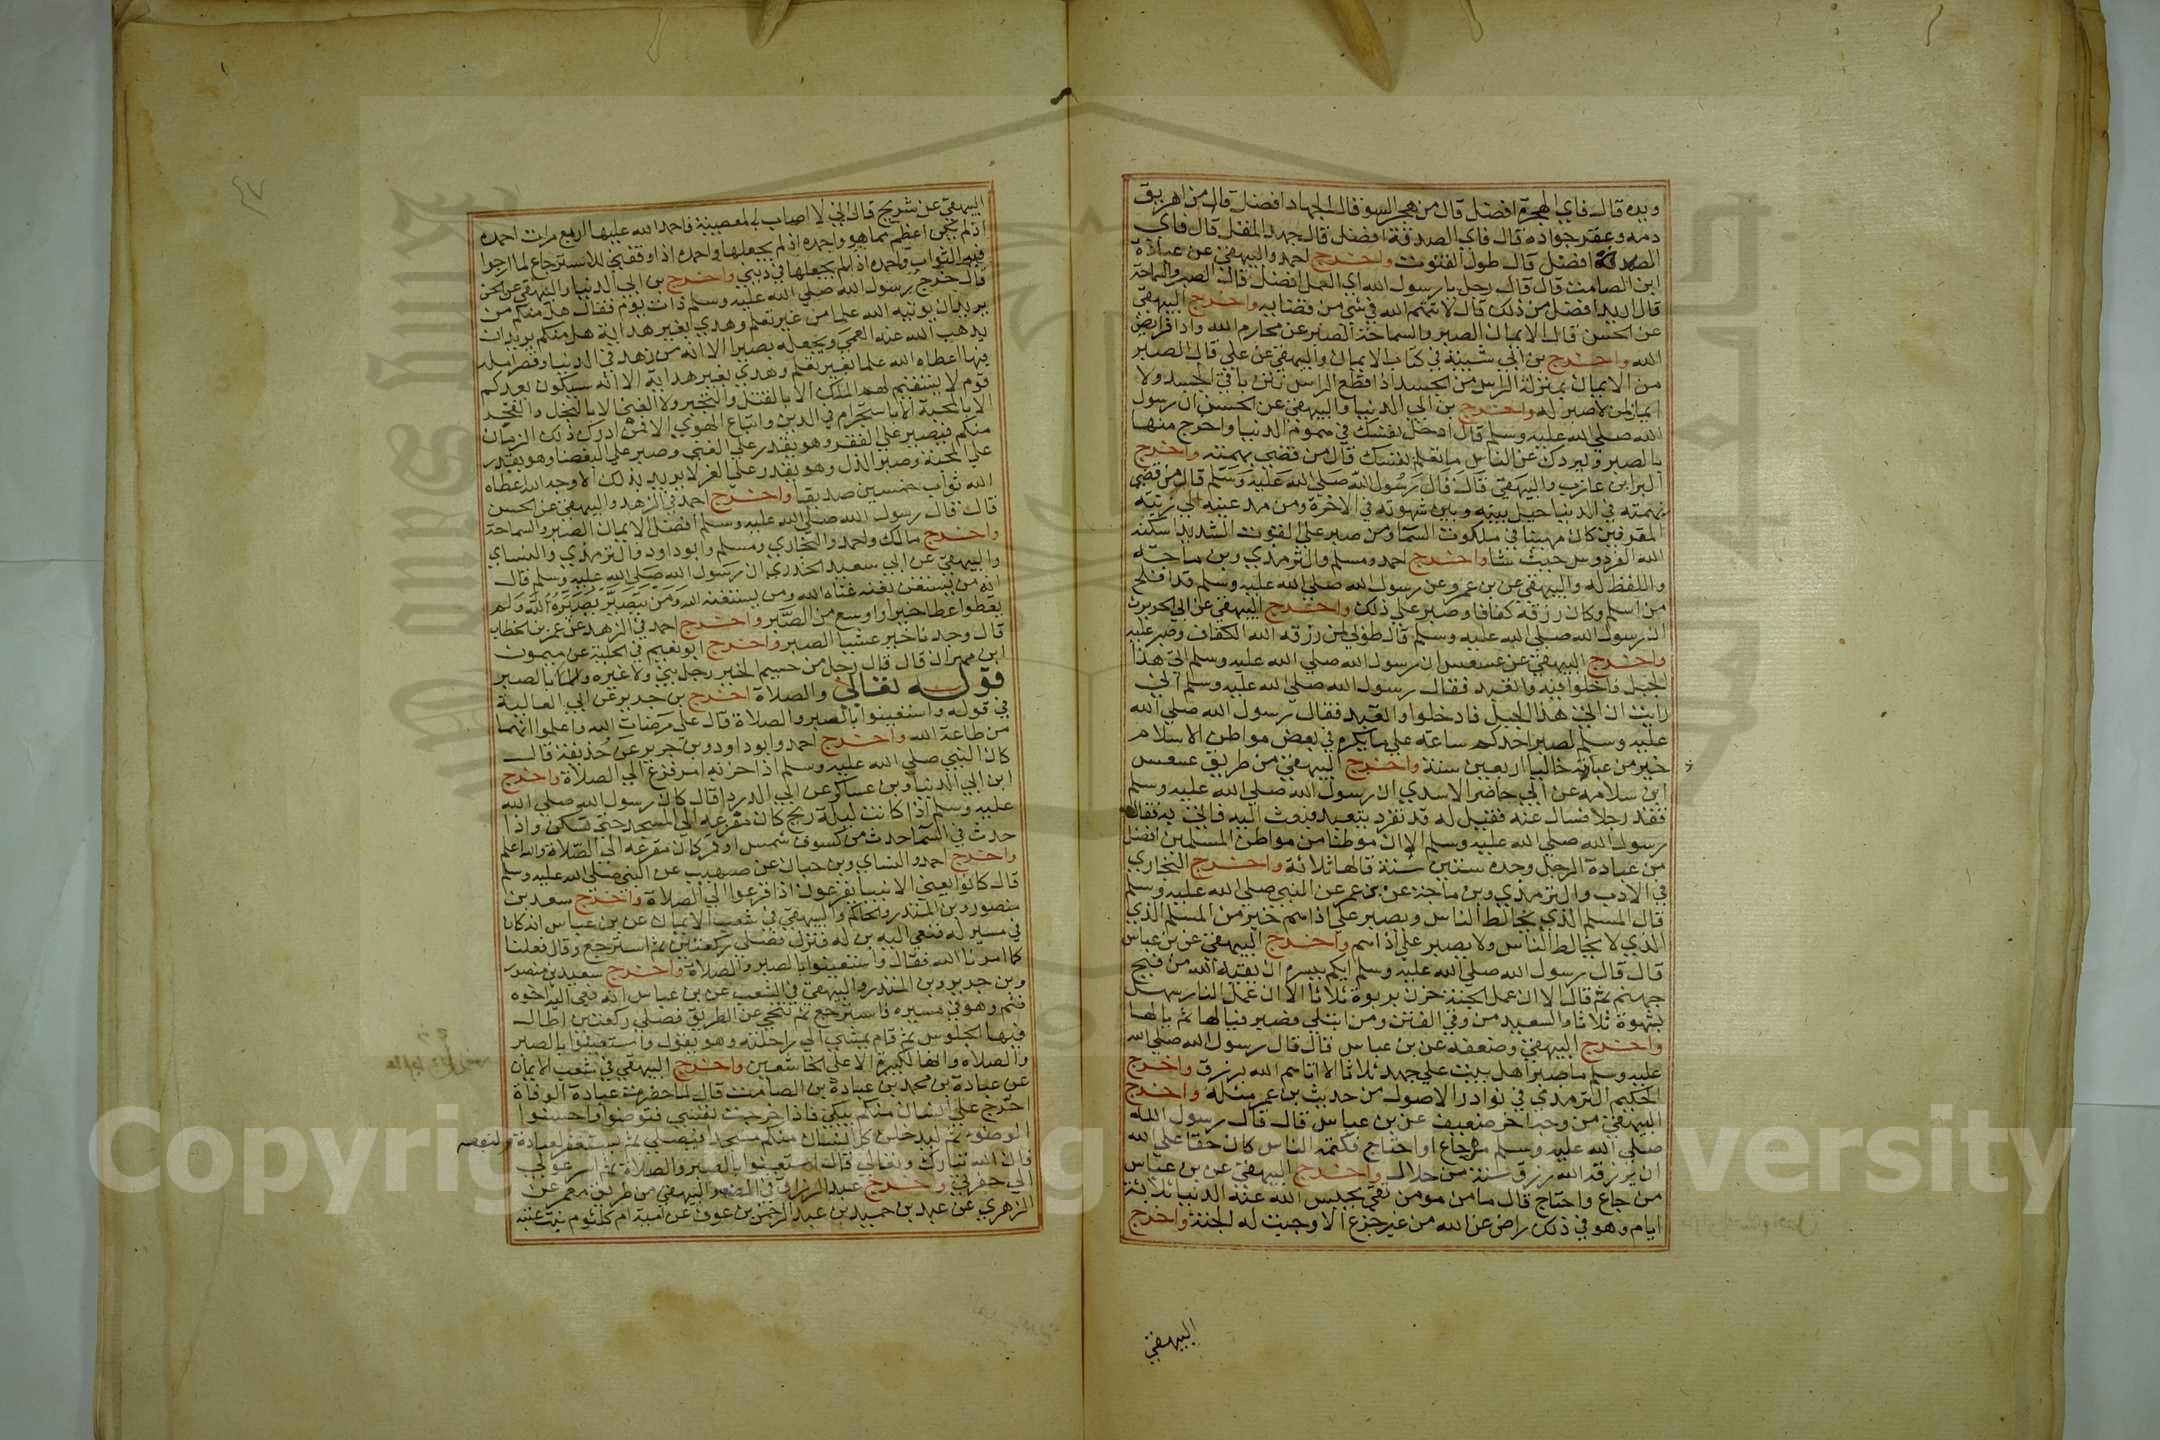 ويده قال فاي الهجرة افضل قال من هجر السو قال فالجهاد افضل قال من اهريق
دمه وعقر جواده قال فاي الصدقة افضل قال جهد المقل قال فاي
الصلاة افضل قال طول القنوت واخرج احمد والبيهقي عن عبادة
ابن الصامت قال قال رجل يا رسول الله اي العمل افضل قال الصبر والسماحة
قال اريد افضل من ذلك قال لا تتهم الله في شي من قضايه واخرج البيهقي
عن الحسن قال الايمان الصبر والسماحة الصبر عن محارم الله واداء فرايض
الله واخرج بن ابي شيبة في كتاب الايمان والبيهقي عن علي قال الصبر
من الايمان بمنزلة الراس من الجسد اذا قطع الراس نتن باقي الجسد ولا
ايمان لمن لا صبر له واخرج بن ابي الدنيا والبيهقي عن الحسن ان رسول
الله صلي الله عليه وسلم قال ادخل نفسك في هموم الدنيا واخرج منها
بالصبر وليردك عن الناس ما تعلم من نفسك واخرج
البرا بن عازب والبيهقي قال قال رسول الله صلي الله عليه وسلم قال من قضي
نهمته في الدنيا حيل بينه وبين شهوته في الاخرة ومن مد عينيه الي زينة
المترفين كان مهينا في ملكوت السما ومن صبر علي القوت الشديد اسكنه
الله الفردوس حيث شا واخرج احمد ومسلم والترمذي وبن ماجه
واللفظ له والبيهقي عن بن عمرو عن رسول الله صلي الله عليه وسلم قد افلح
من اسلم وكان رزقه كفافا وصبر علي ذلك واخرج البيهقي عن ابي الحويرث
ان رسول الله صلي الله عليه وسلم قال طوبي لمن رزقه الله الكفاف وصبر عليه
واخرج البيهقي عن عسعس ان رسول الله صلي الله عليه وسلم
الجبل فاخلوا فيه واتعبد فقال رسول الله صلي الله عليه وسلم
رايت ان اتي هذا الجبل فادخلوا واتعبد فقال رسول الله صلي الله
عليه وسلم لصبر احدكم ساعة علي ما يكره في بعض مواطن الاسلام
خير من عبادته خاليا اربعين سنة واخرج البيهقي من طريق عسعس
ابن سلامه عن ابي حاضر الاسدي ان رسول الله صلي الله عليه وسلم
فقد رجلا فسال عنه فقيل له قد تفرد يتعبد فبعث اليه فاتي به فقال
رسول الله صلي الله عليه وسلم الا ان موطنا من مواطن المسلمين افضل
من عبادة الرجل وحده ستين سنة قالها ثلاثة واخرج البخاري
في الادب والترمذي وبن ماجة عن بن عمر عن النبي صلي الله عليه وسلم
قال المسلم الذي يخالط الناس ويصبر علي اذاهم خير من المسلم الذي
الذي لا يخالط الناس ولا يصبر علي اذاهم واخرج البيهقي عن بن عباس
قال قال رسول الله صلي الله عليه وسلم ايكم يسره ان يقيه الله من فيح
جهنم ثم قال الا ان عمل الجنة حزن بربوة ثلاثا الا ان عمل النار سهل
بشهوة ثلاثا والسعيد من وقي الفتن ومن ابتلي فصبر فيالها ثم يالها
واخرج البيهقي وضعفه عن بن عباس قال قال رسول الله صلي الله
عليه وسلم ما صبر اهل بيت علي جهد ثلاثا الا اتاهم الله برزق واخرج
الحكيم الترمذي في نوادر الاصول من حديث بن عمر مثله واخرج
البيهقي من وجه اخر ضعيف عن بن عباس قال قال رسول الله
صلي الله عليه وسلم من جاع او احتاج فكتمه الناس كان حقا علي الله
ان يرزقه الله رزق سنة من حلال واخرج البيهقي عن بن عباس
من جاع واحتاج قال ما من مومن تقي يحبس الله عنه الدنيا ثلاثة
ايام وهو في ذلك راض عن الله من غير جزع الا وجبت له الجنة واخرج
البيهقي
٤٧
البيهقي عن شريح قال اني لا اصاب بالمصيبة فاحمد الله عليها اربع مرات احمده
اذ لم تكن اعظم مما هي واحمده اذ لم يجعلها واحمده اذ وفقني للاسترجاع لما ارجوا
فيه الثواب واحمده اذ لم يجعلها في ديني واخرج بن ابي الدنيا والبيهقي عن الحسن
قال خرج رسول الله صلي الله عليه وسلم ذات يوم فقال هل منكم من
يريد ان يوتيه الله علما من غير تعلم وهدي بغير هداية هل منكم يريد ان
يذهب الله عنه العمي ويجعله بصيرا الا انه من زهد في الدنيا وقصر امله
فيها اعطاه الله علما بغير تعلم وهدي بغير هداية الا انه سيكون بعدكم
قوم لا يستقيم لهم الملك الا بالقتل والتجبر ولا الغني الا بالبخل والفخر
الا بالمحبة الا باستجرام في الدين واتباع الهوي الا فمن ادرك ذلك الزمان
منكم فيصبر علي الفقر وهو يقدر علي الغني وصبر علي البغضا وهو يقدر
علي المحبة وصبر الذل وهو يقدر علي العز لا يريد بذلك الا وجه الله اعطاه
الله ثواب خمسين صديقا واخرج احمد في الزهد والبيهقي عن الحسن
قال قال رسول الله صلي الله عليه وسلم افضل الايمان الصبر والسماحة
واخرج مالك واحمد والبخاري ومسلم وابو داود والترمذي والنساي
والبيهقي عن ابي سعيد الخدري ان رسول الله صلي الله عليه وسلم قال
انه من يستعفف يعفه الله ومن يستغني يغنه الله ومن يتصبر يصبره الله ولم
يعطوا عطا خيرا واوسع من الصبر واخرج احمد في الزهد عن عمر بن الخطاب
قال وجدنا خير عيشنا الصبر واخرج ابو نعيم في الحلية عن ميمون
ابن مهران قال قال رجل من جسيم الخير رجل نبي ولا غيره الا بالصبر
قوله تعالي والصلاة اخرج بن جرير عن ابي العالية
في قوله واستعينوا بالصبر والصلاة قال علي مرضات الله واعلموا انهما
من طاعة الله واخرج احمد وابو داود وبن جرير عن حذيفة قال
كان النبي صلي الله عليه وسلم اذا حزبه امر فزع الي الصلاة واخرج
ابن ابي الدنيا وبن عساكر عن ابي الدردا قال كان رسول الله صلي الله
عليه وسلم اذا كانت ليلة ريح كان مفزعه الي المسجد حتي تسكن واذا
حدث في السما حدث من كسوف شمس او قمر كان مفزعه الي الصلاة والله اعلم
واخرج احمد والنساي وبن حبان عن صهيب عن النبي صلي الله عليه وسلم
قال كانوا يعني الانبيا يفزعون اذا فزعوا الي الصلاة واخرج سعد بن
منصور وبن المنذر والحاكم والبيهقي في شعب الايمان عن بن عباس انه كان
في مسير له فنعي اليه بن له فنزل فصلي ركعتين ثم استرجع وقال فعلنا
كما امرنا الله فقال واستعينوا بالصبر والصلاة واخرج سعيد بن منصور
وبن جرير وبن المنذر والبيهقي في الشعب عن بن عباس انه نعي اليه اخوه
قثم وهو في مسيره فاسترجع ثم تنحي عن الطريق فصلي ركعتين اطال
فيها الجلوس ثم قام يمشي الي راحلته وهو يقول واستعينوا بالصبر
والصلاه وانها لكبيرة الا علي الخاشعين واخرج البيهقي في شعب الايمان
عن عبادة بن محمد بن عبادة بن الصامت قال لما حضرت عبادة الوفاة
احرج علي انسان منكم يبكي فاذا خرجت نفسي فتوضوا واحسنوا
الوضوء ثم ليدخل كل انسان منكم مسجدا فيصلي ثم يستغفر لعبادة ولنفسه
فان الله تبارك وتعالي قال استعينوا بالصبر والصلاة ثم اسرعوا بي
الي حفرتي واخرج عبد الرزاق في المصنف والبيهقي من طريق معمر عن
الزهري عن عبد بن حميد بن عبد الرحمن بن عوف عن امه ام كلثوم بنت عقبة
Copyright © King Saud University